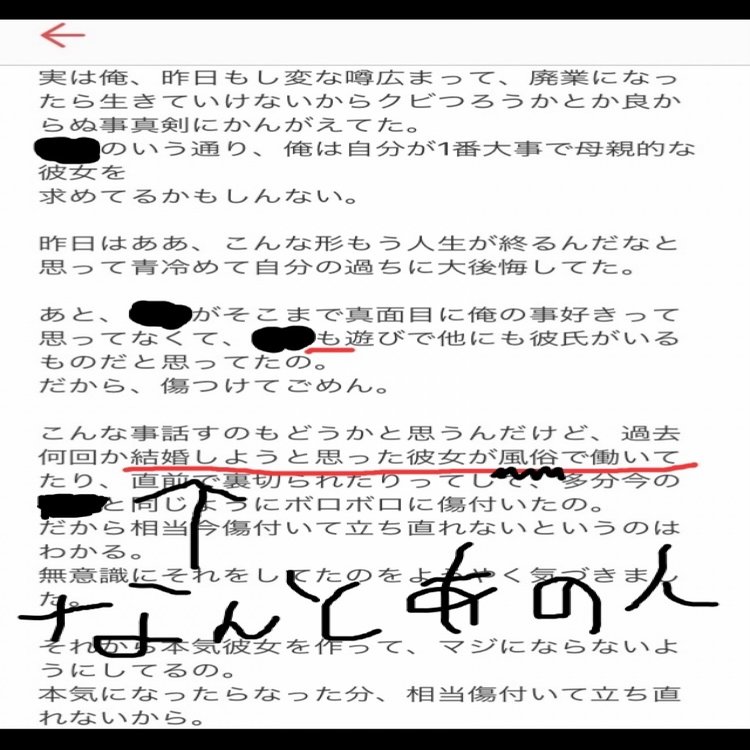 実は俺、昨日もし変な噂広まって、廃業になっ
たら生きていけないからクビつろうかとか良か
らぬ事真剣にかんがえてた。
のいう通り、俺は自分が1番大事で母親的な
彼女を
求めてるかもしんない。
昨日はああ、こんな形もう人生が終るんだなと
思って青冷めて自分の過ちに大後悔してた。
あと、がそこまで真面目に俺の事好きって
思ってなくて、も遊びで他にも彼氏がいる
ものだと思ってたの。
だから、傷つけてごめん。
こんな事話すのもどうかと思うんだけど、過去
何回か結婚しようと思った彼女が風俗で働いて
たり、直前で裏切られたりってして、多分今の
と同じようにボロボロに傷付いたの。
だから相当今傷付いて立ち直れないというのは
わかる。
無意識にそれをしてたのをようやく気づきまし
た。
なんとあの人
それから本気彼女を作って、マジにならないよ
うにしてるの。
本気になったらなった分、相当傷付いて立ち直
れないから。